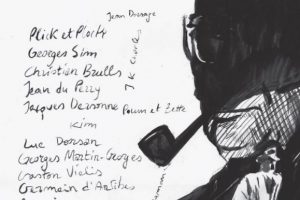 Jean Dossage
Plick et Plock
Georges Sim
Christian Brulls
Jean du Perry
Jacques Dersonne
Poum et Zette
Kim
Luc Dorsan
Georges Martin-Georges
Gaston Vialis
Germain d'Antibes